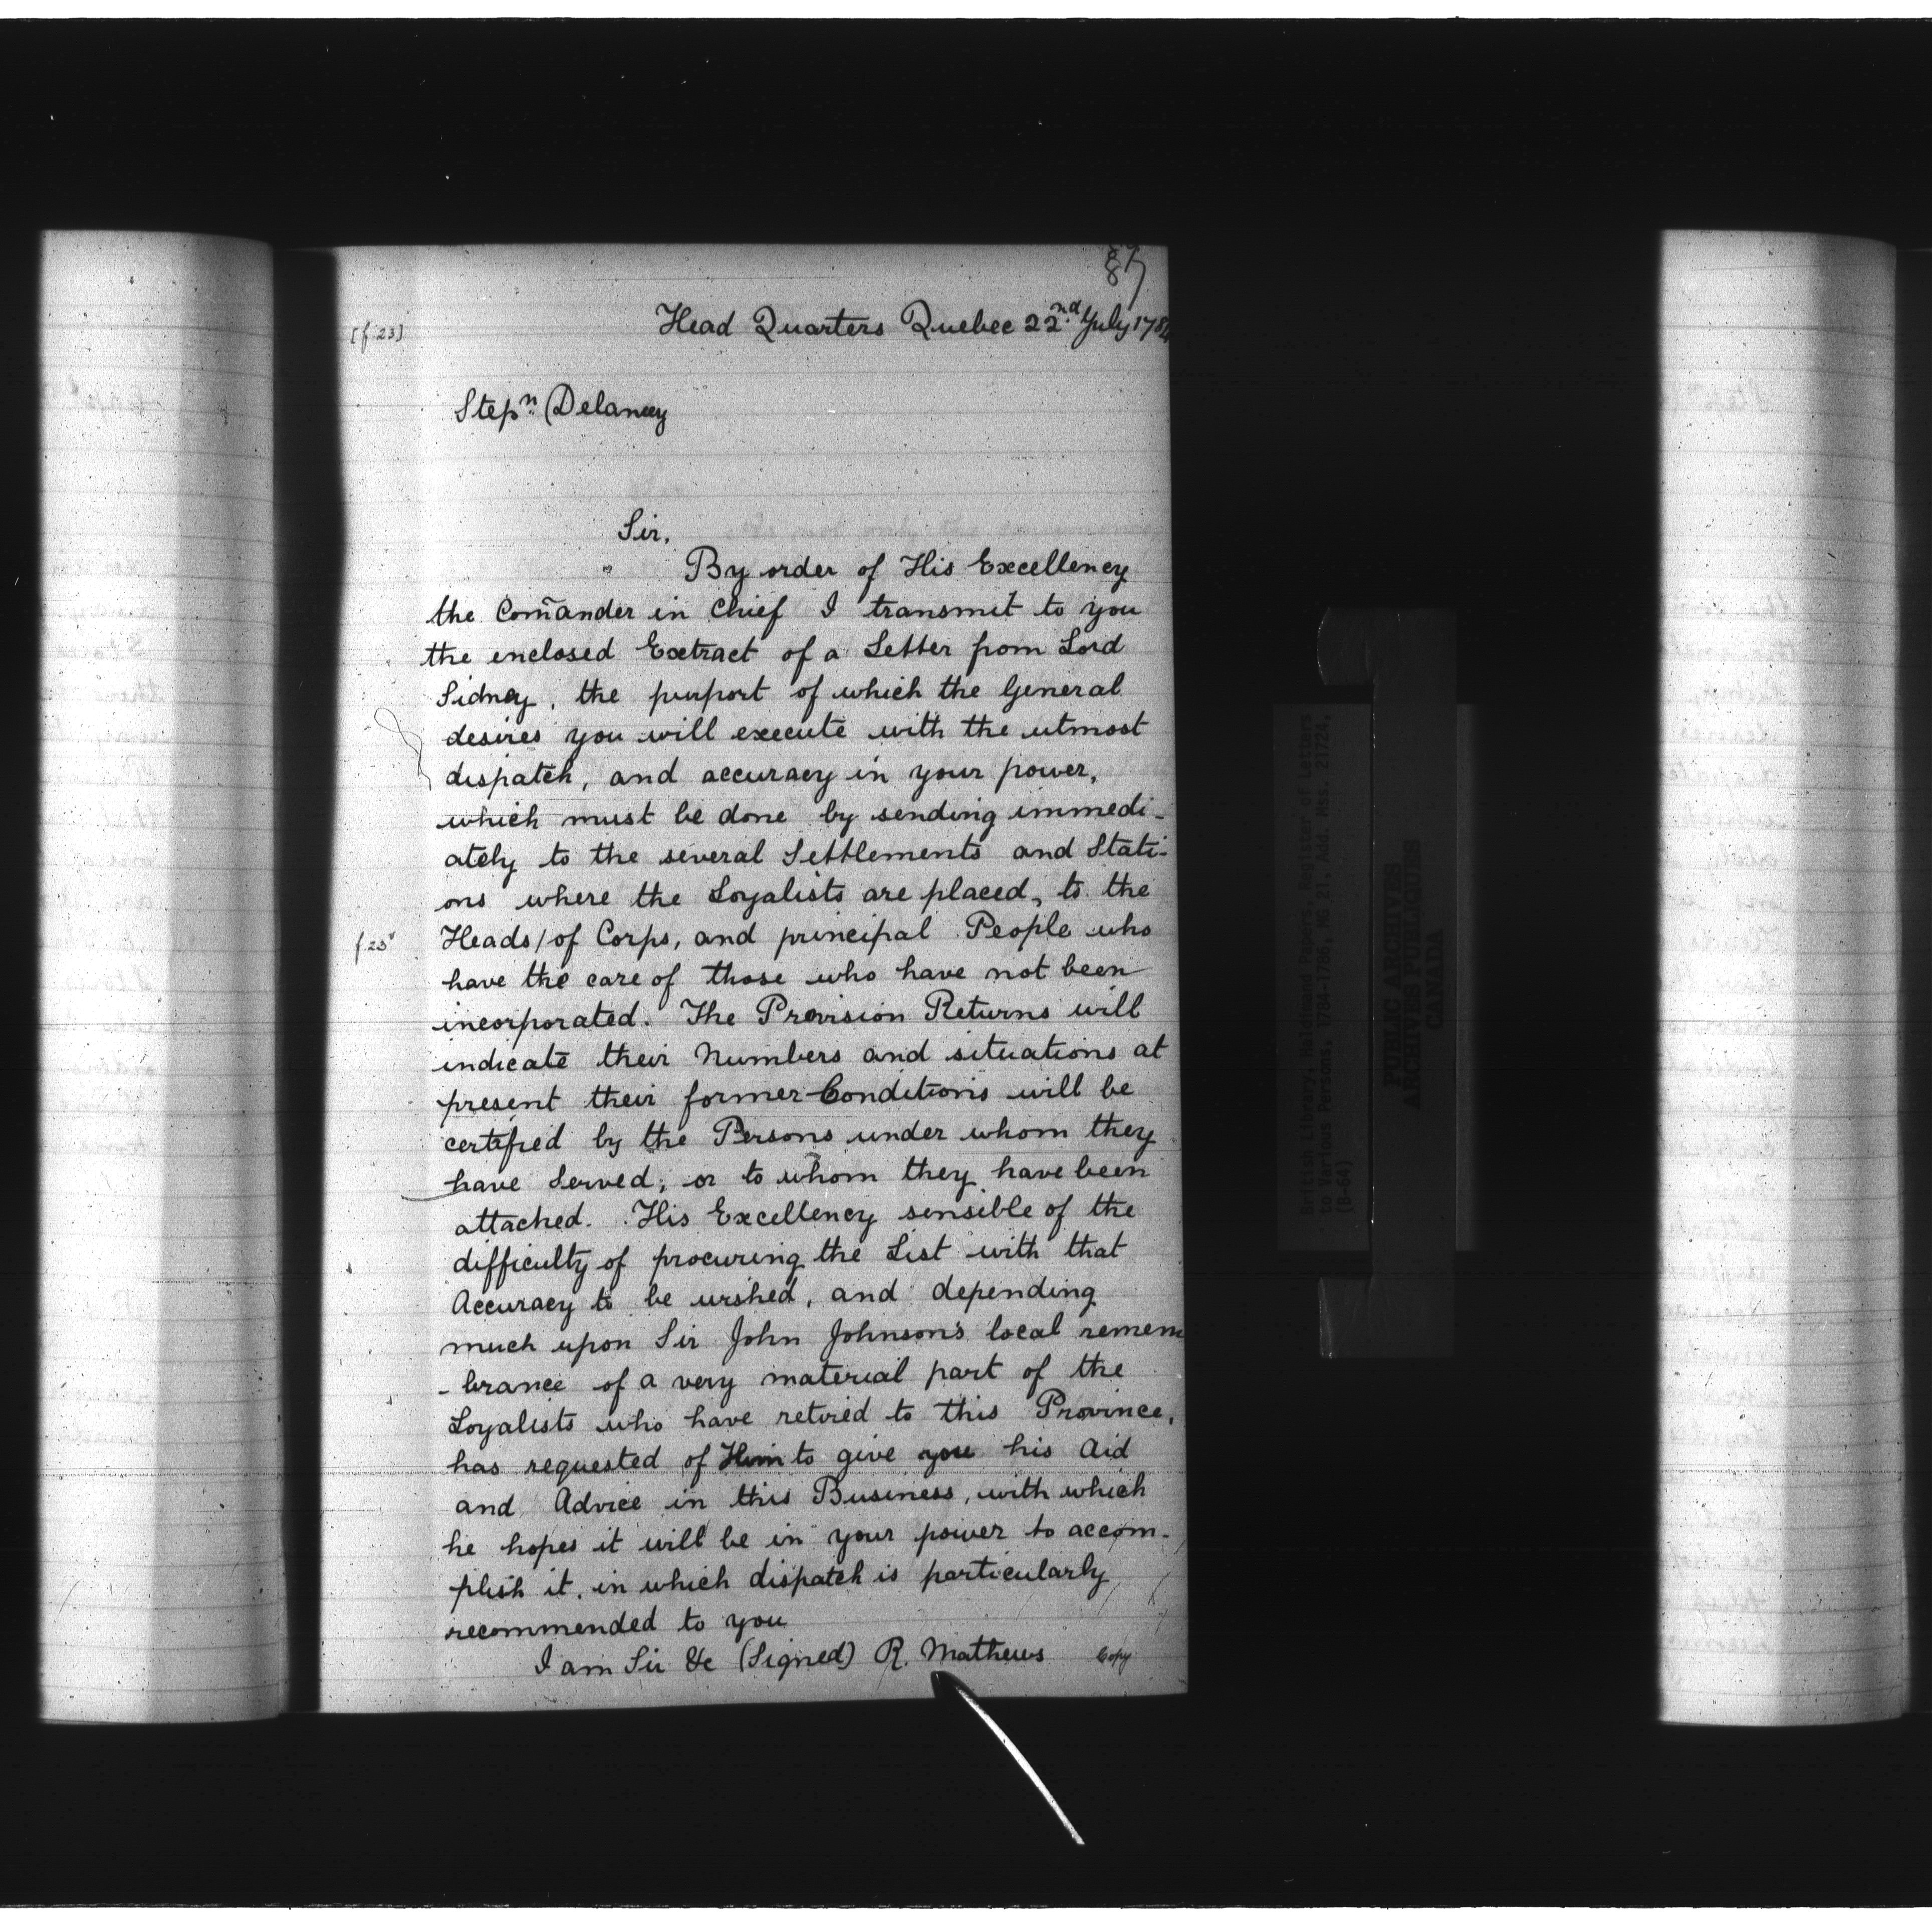 87
[f 23] Head Quarters Quebec 22nd. July 1784
Stepn. Delancey
Sir,
By order of His Excellency
the Com̄ander in Chief I transmit to you
the enclosed Extract of a Letter from Lord
Sidney, the purport of which the General
desires you will execute with the utmost
dispatch, and accuracy in your power,
which must be done by sending immedi-
ately to the several Settlements and Stati-
ons where the Loyalists are placed, to the
f.23v Heads/of Corps, and principal People who
have the care of those who have not been
incorporated. The Provision Returns will
indicate their Numbers and situations at
present their former Conditions will be
certified by the Persons under whom they
have Served, or to whom they have been
attached. His Excellency sensible of the
difficulty of procuring the List with that
Accuracy to be wished, and depending
much upon Sir John Johnson's local remem
-brance of a very material part of the
Loyalists who have retired to this Province,
has requested of Him to give you his Aid
and Advice in this Business, with which
he hopes it will be in your power to accom-
plish it, in which dispatch is particularly
recommended to you
I am Sir &c (Signed) R. Mathews Copy
British Library, Haldimand Papers, Register of Letters
to Various Persons, 1784-1786, MG 21, Add. Mss. 21724,
(B-64)
PUBLIC ARCHIVES
ARCHIVES PUBLIQUES
CANADA